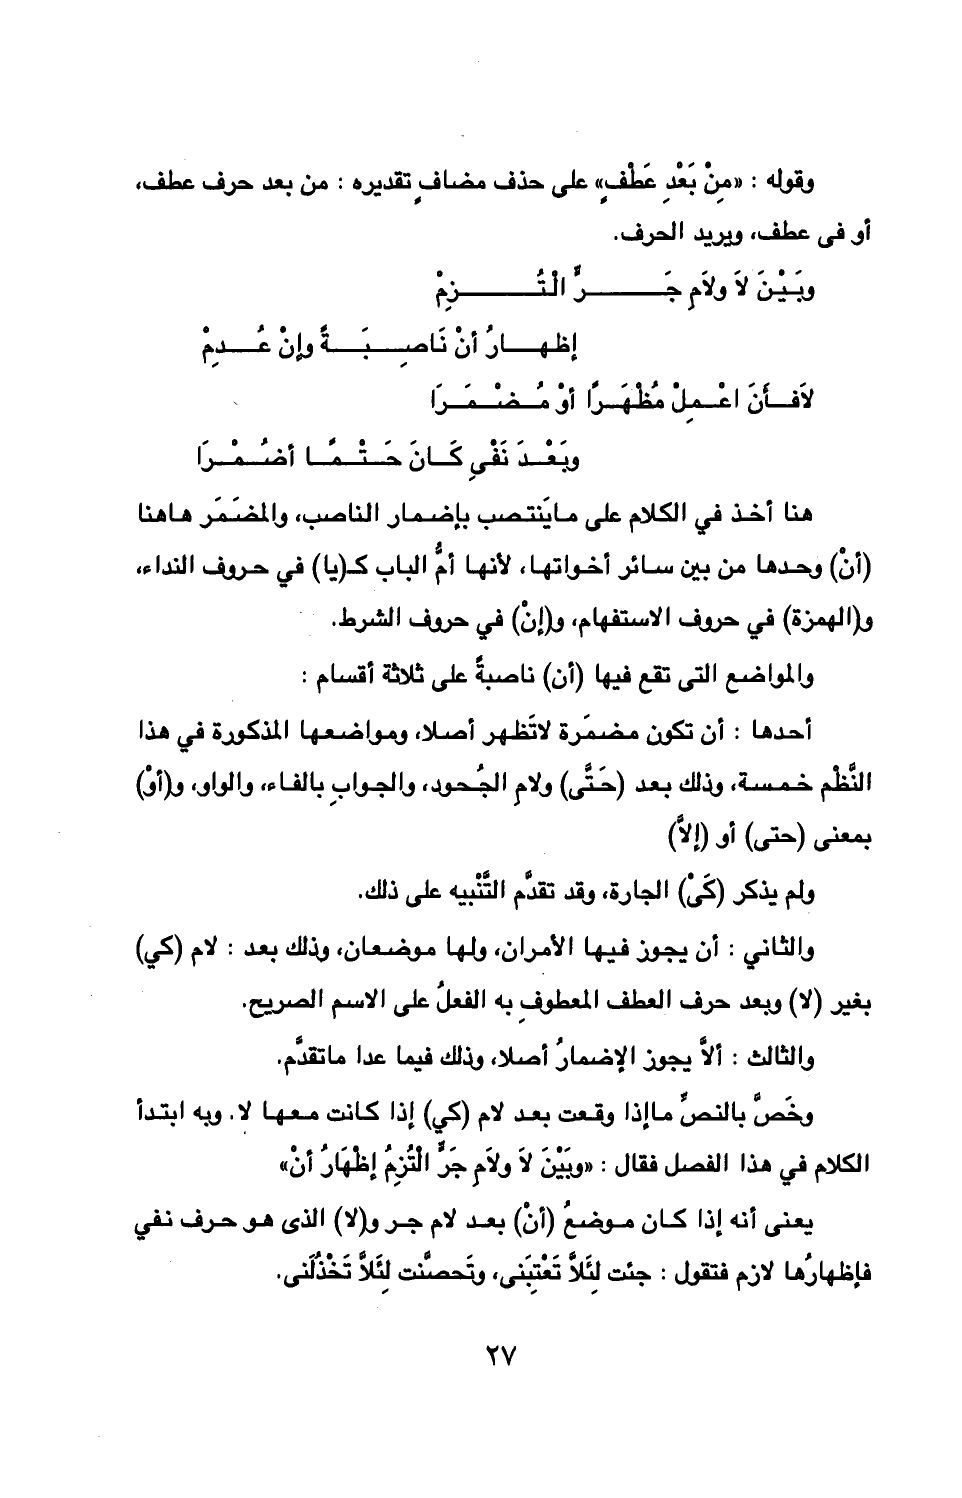 وقوله : «مِنْ بَعْدِ عَطْفٍ» على حذف مضافٍ تقديره : من بعد حرف عطف،
أو فى عطف، ويريد الحرف.
وبَيْنَ لاَ ولاَمِ جَرٍّ الْتُزِمْ
إظهارُ أنْ نَاصِبَةً وإنْ عُدِمْ
لاَفأَنَ اعْمِلْ مُظْهَرًا أوْ مُضْمَرَا
وبَعْدَ نَفْىِ كَانَ حَتْمًا أضُمْرَا
هنا أخذ في الكلام على مايَنتصب بإضمار الناصب، والمضمَر هاهنا
(أنْ) وحدها من بين سائر أخواتها، لأنها أمُّ الباب كـ(يا) في حروف النداء،
و(الهمزة) في حروف الاستفهام، و(إنْ) في حروف الشرط.
والمواضع التى تقع فيها (أن) ناصبةً على ثلاثة أقسام :
أحدها : أن تكون مضمَرة لاتَظهر أصلا، ومواضعها المذكورة في هذا
النَّظْم خمسة، وذلك بعد (حَتَّى) ولامِ الجُحود، والجوابِ بالفاء، والواو، و(أوْ)
بمعنى (حتى) أو (إلاَّ)
ولم يذكر (كَىْ) الجارة، وقد تقدَّم التَّنْبيه على ذلك.
والثاني : أن يجوز فيها الأمران، ولها موضعان، وذلك بعد : لام (كي)
بغير (لا) وبعد حرف العطف المعطوفِ به الفعلُ على الاسم الصريح.
والثالث : ألاَّ يجوز الإضمارُ أصلا، وذلك فيما عدا ماتقدَّم.
وخَصَّ بالنصِّ ماإذا وقعت بعد لام (كي) إذا كانت معها لا. وبه ابتدأ
الكلام في هذا الفصل فقال : «وبَيْنَ لاَ ولاَمِ جَرٍّ الْتُزِمُ إظْهَارُ أنْ»
يعنى أنه إذا كان موضعُ (أنْ) بعد لام جر و(لا) الذى هو حرف نفي
فإظهارُها لازم فتقول : جئت لِئَلاَّ تَعْتِبَنى، وتَحصنَّت لِئَلاَّ تَخْذُلَنى.
٢٧